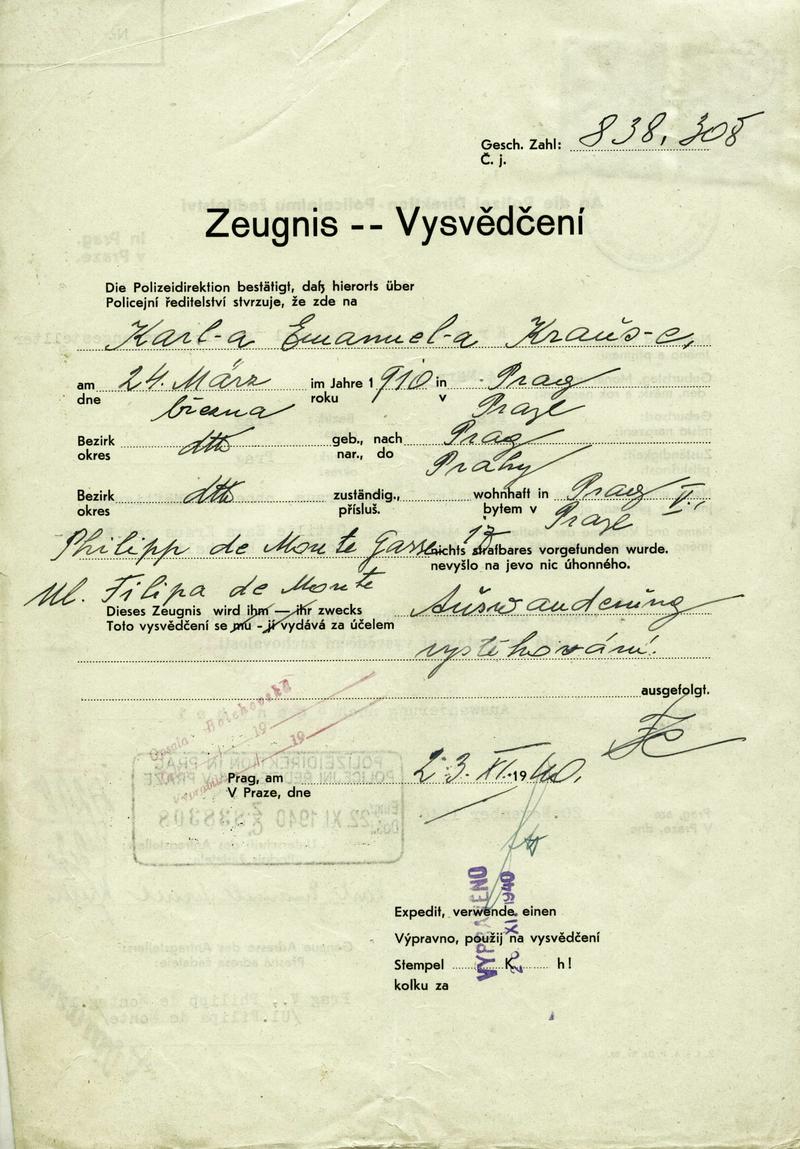 Gesch. Zahl: 838,308
Č. j.
Zeugnis -- Vysvědčení
Die Polizeidirektion bestätigt, daß hierorts über
Policejní ředitelství stvrzuje, že zde na
Karl-a Emanuel-a Kraus-e,
am 24. März im Jahre 1910 in Prag
dne března roku v Praze
Bezirk dtto geb., nach Prag
okres nar., do Prahy
Bezirk dtto zuständig., wohnhaft in Prag V.,
okres přísluš. bytem v Praze
Philipp de Monte Gasse 17 nichts strafbares vorgefunden wurde.
nevyšlo na jevo nic úhonného.
Ul. Filipa de Monte
Dieses Zeugnis wird ihm — ihr zwecks Auswanderung
Toto vysvědčení se mu - jí vydává za účelem
vystěhování.
ausgefolgt.
Prag, am 23. XI. 1940.
V Praze, dne
POLIZEIDIREKTION IN PRAG
22 XI 1940
838308
VYPRAVENO
XI 1940
Expedit, verwende einen
Výpravno, použij na vysvědčení
Stempel K h!
kolku za